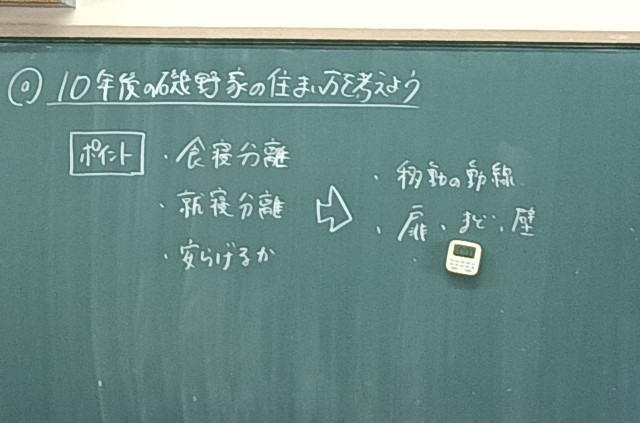 ◎ 10年後の磯野家の住まい方を考えよう
ポイント
・食寝分離
・就寝分離
・安らげるか
⇨
・移動の動線
・扉、まど、壁